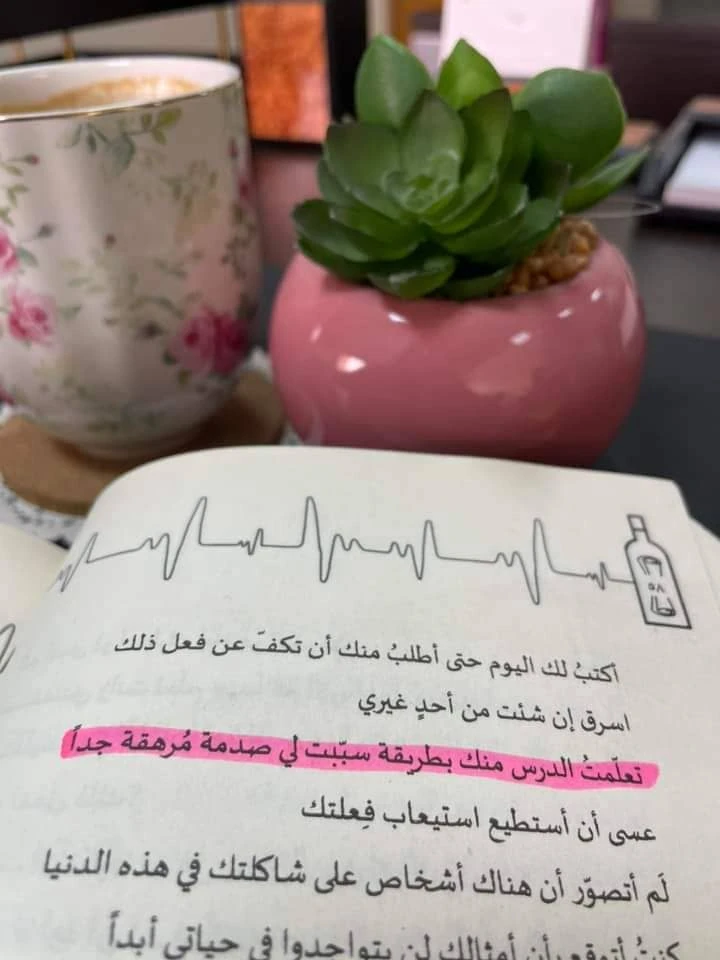 أكتبُ لك اليوم حتى أطلبُ منك أن تكفّ عن فعل ذلك
اسرق إن شئت من أحدٍ غيري
تعلّمتُ الدرس منك بطريقة سبّبت لي صدمة مُرهقة جداً
عسى أن أستطيع استيعاب فِعلتك
لَم أتصوّر أن هناك أشخاص على شاكلتك في هذه الدنيا
كنتُ أتوقع بأن أمثالك لن يتواجدوا في حياتي أبداً